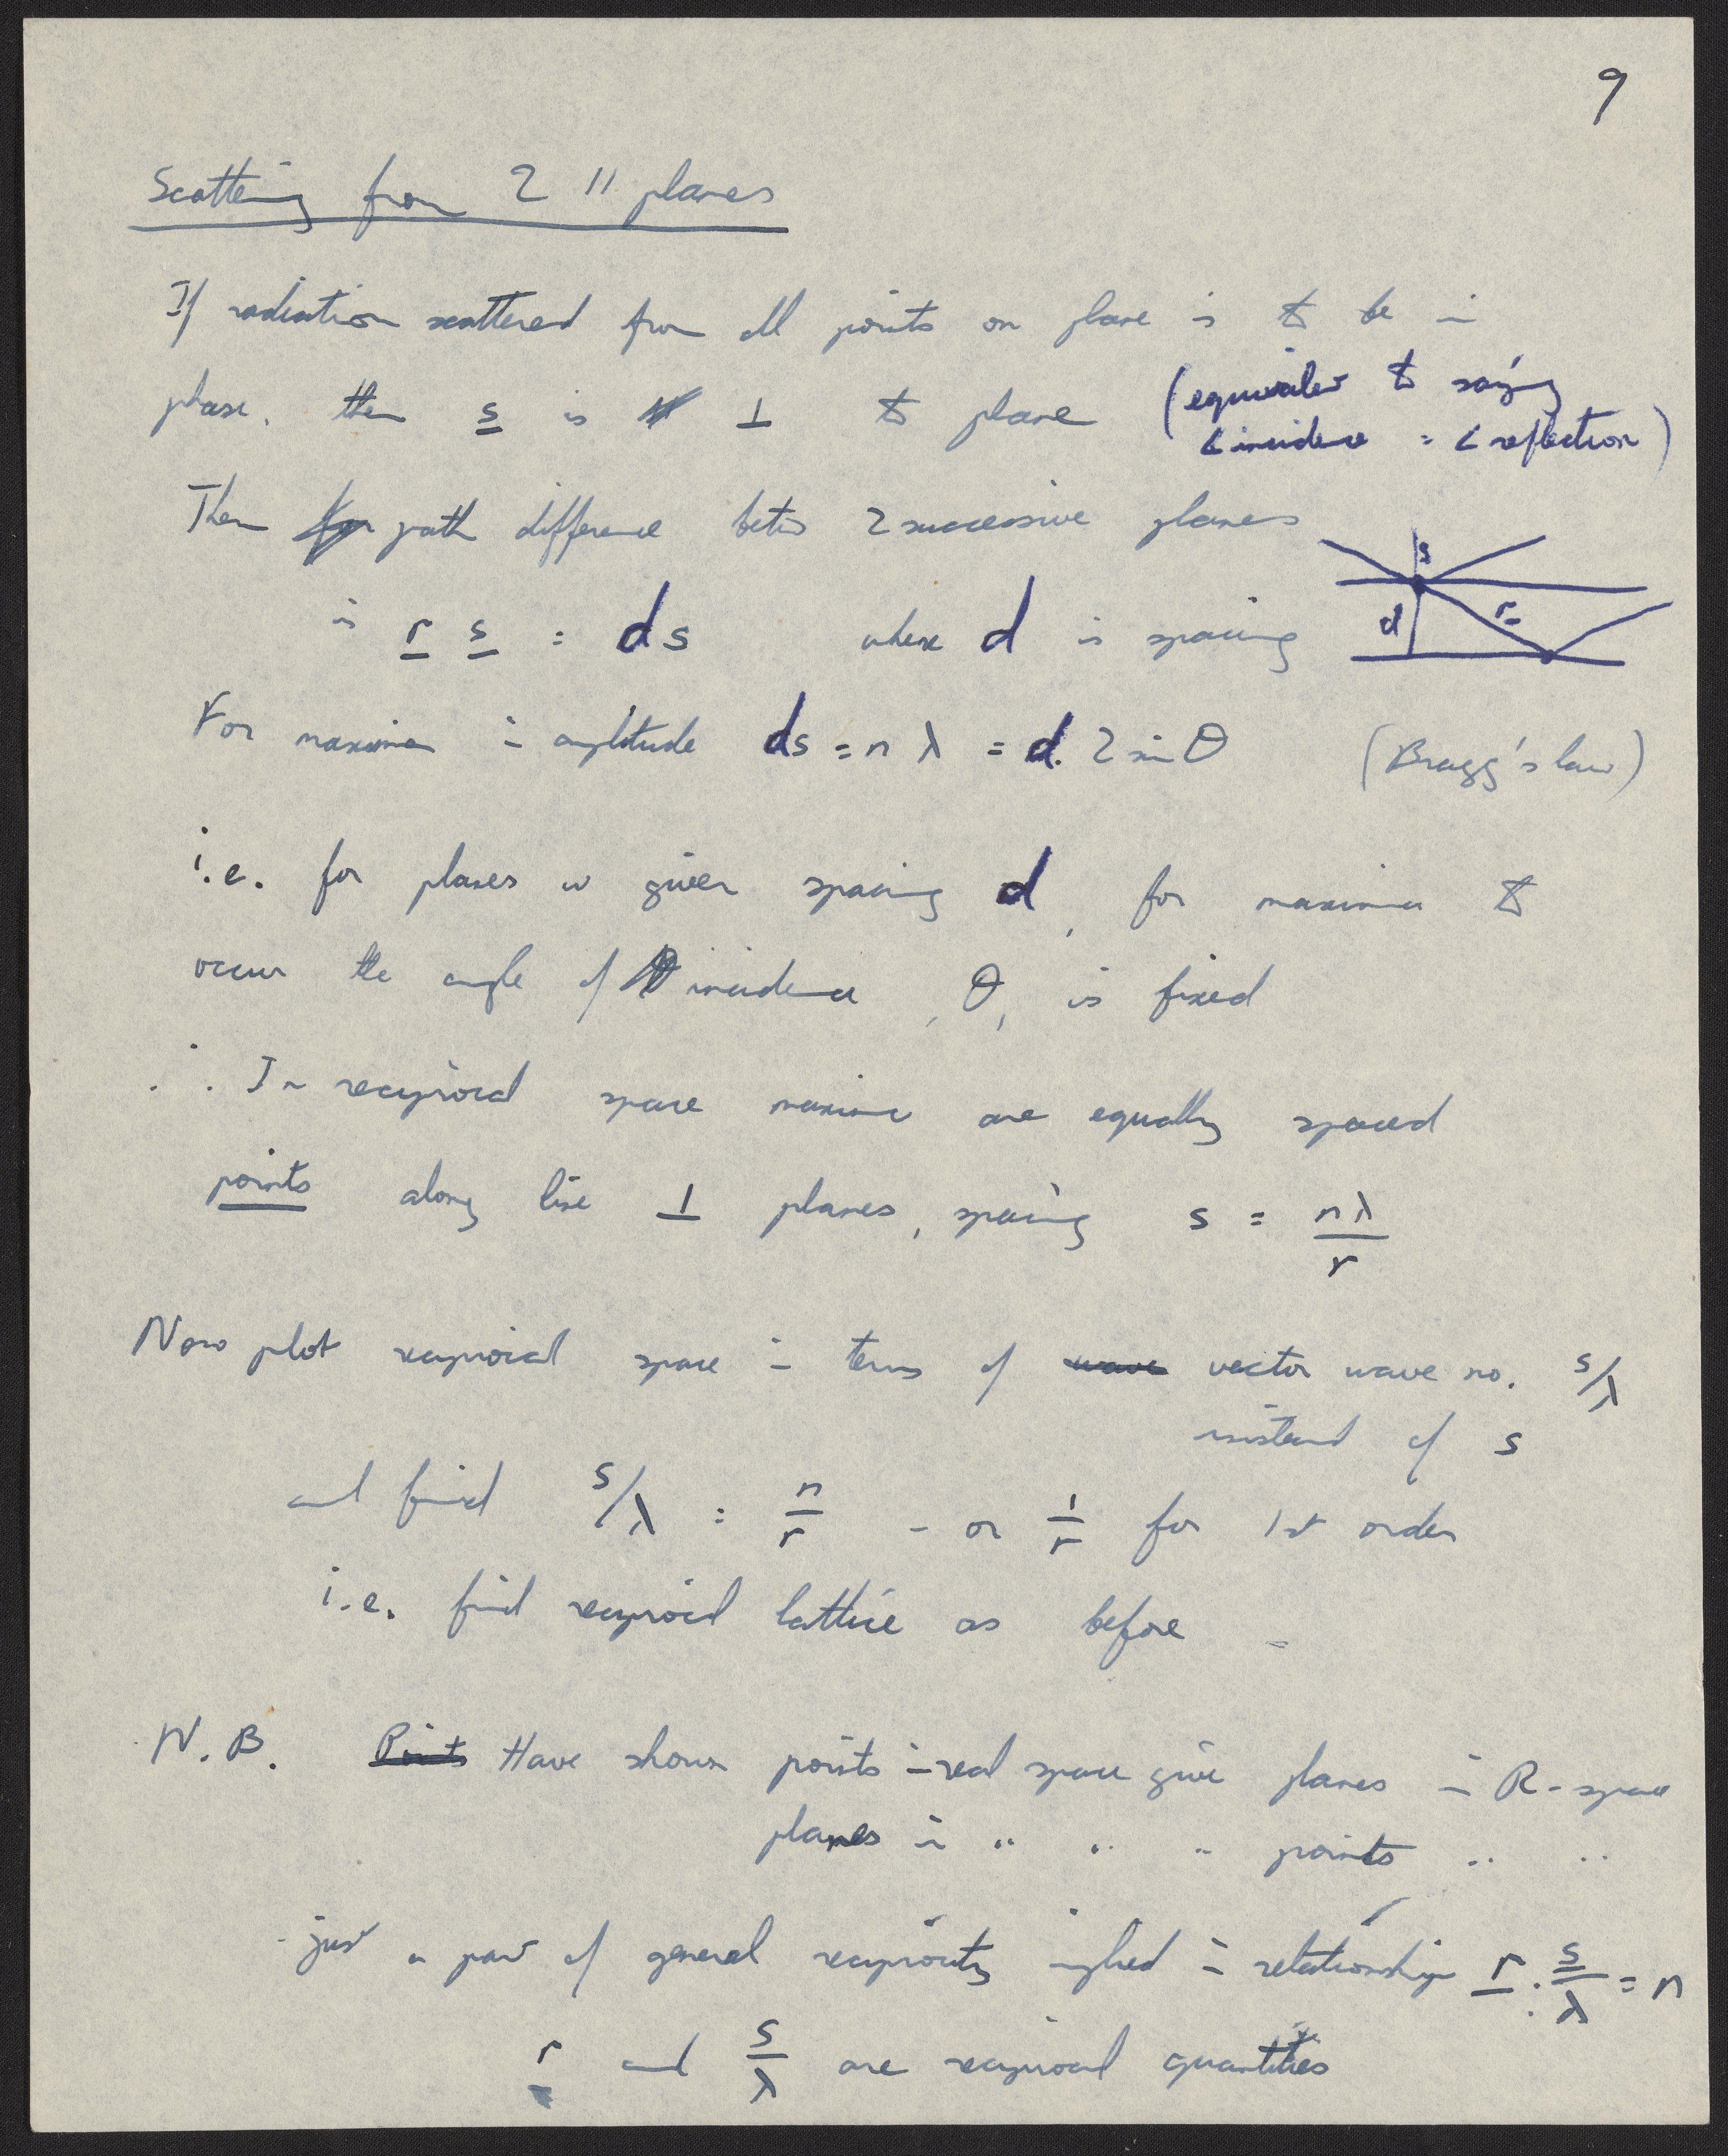 9
Scattering from 2 // planes
If radiation scattered from all points on plane is to be in
phase, then s is ⊥ to plane (equivalent to saying
∠ incidence = ∠ reflection)
Then path difference betw 2 successive planes
is r s = ds where d is spacing
s
d r
For maxima in amplitude ds = n λ = d. 2 sin θ (Bragg's law)
i.e. for planes w given spacing d, for maxima to
occur the angle of incidence, θ, is fixed
∴ In reciprocal space maxima are equally spaced
points along line ⊥ planes, spacing s = nλ/r
Now plot reciprocal space in terms of wave vector wave no. s/λ
instead of s
and find s/λ = n/r - or 1/r for 1st order
i.e. find reciprocal lattice as before -
N.B. Points Have shown points in real space give planes in R-space
planes in " " " points " "
- just a part of general reciprocity implied in relationship r . s/λ = n
r and s/λ are reciprocal quantities